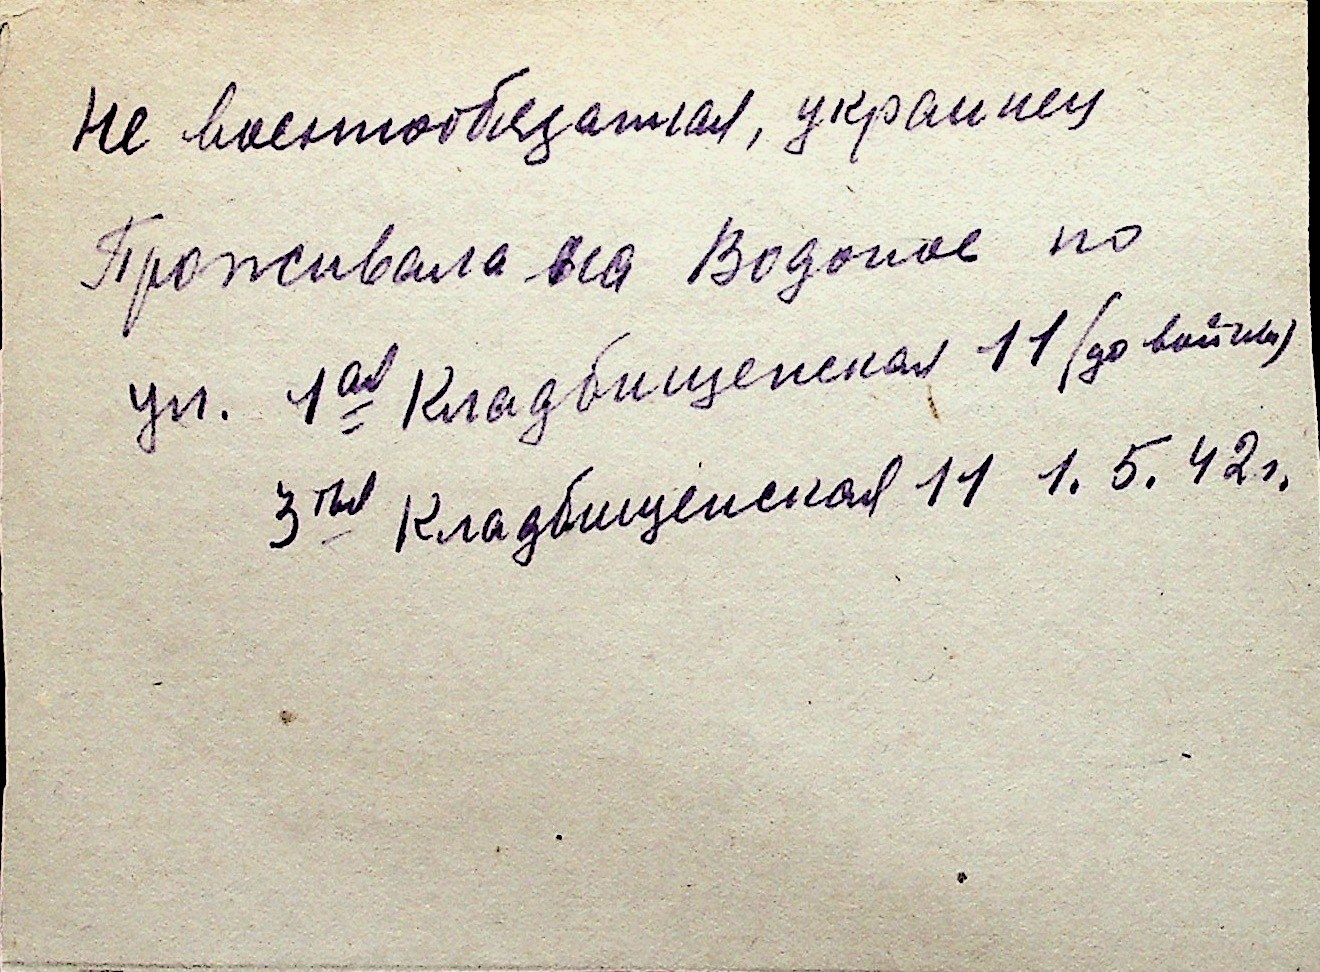 Не военнообязанная, украинец
Проживала на Водопое по
ул. 1ая Кладбищенская 11 (до войны)
3тья Кладбищенская 11 1.5.42г.